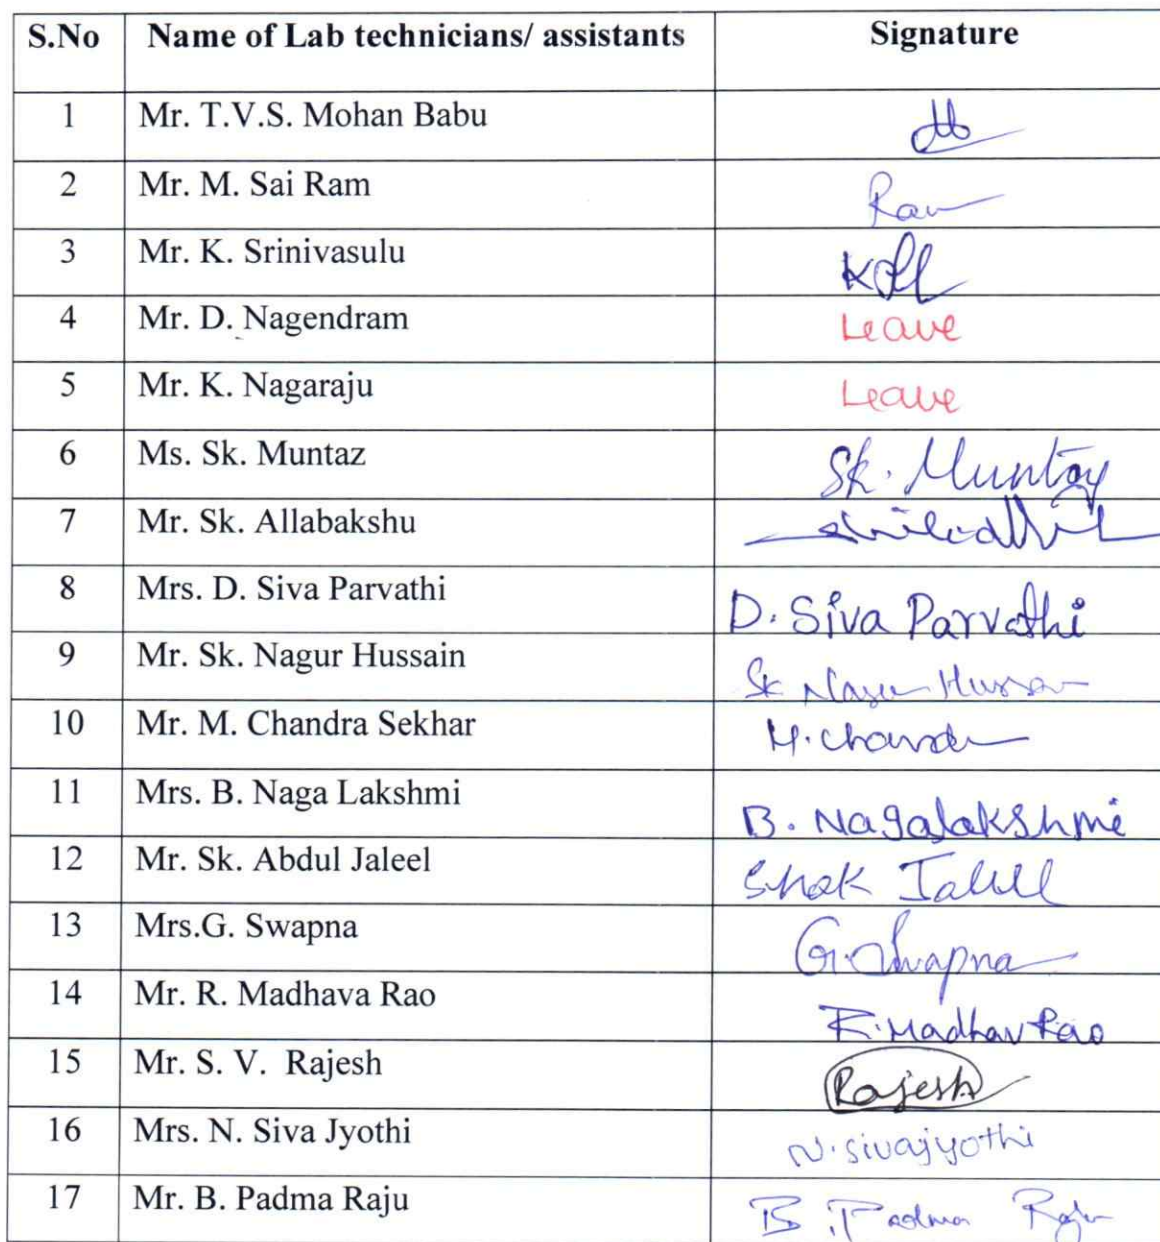 S.No Name of Lab technicians/ assistants Signature
1 Mr. T.V.S. Mohan Babu
2 Mr. M. Sai Ram Ram
3 Mr. K. Srinivasulu
4 Mr. D. Nagendram Leave
5 Mr. K. Nagaraju Leave
6 Ms. Sk. Muntaz Sk. Muntaz
7 Mr. Sk. Allabakshu
8 Mrs. D. Siva Parvathi D. Siva Parvathi
9 Mr. Sk. Nagur Hussain Sk
10 Mr. M. Chandra Sekhar M. Chandr
11 Mrs. B. Naga Lakshmi B. Nagalakshmi
12 Mr. Sk. Abdul Jaleel
13 Mrs.G. Swapna G. Swapna
14 Mr. R. Madhava Rao R. Madhav Rao
15 Mr. S. V. Rajesh Rajesh
16 Mrs. N. Siva Jyothi N. sivajyothi
17 Mr. B. Padma Raju B. Padma Raju